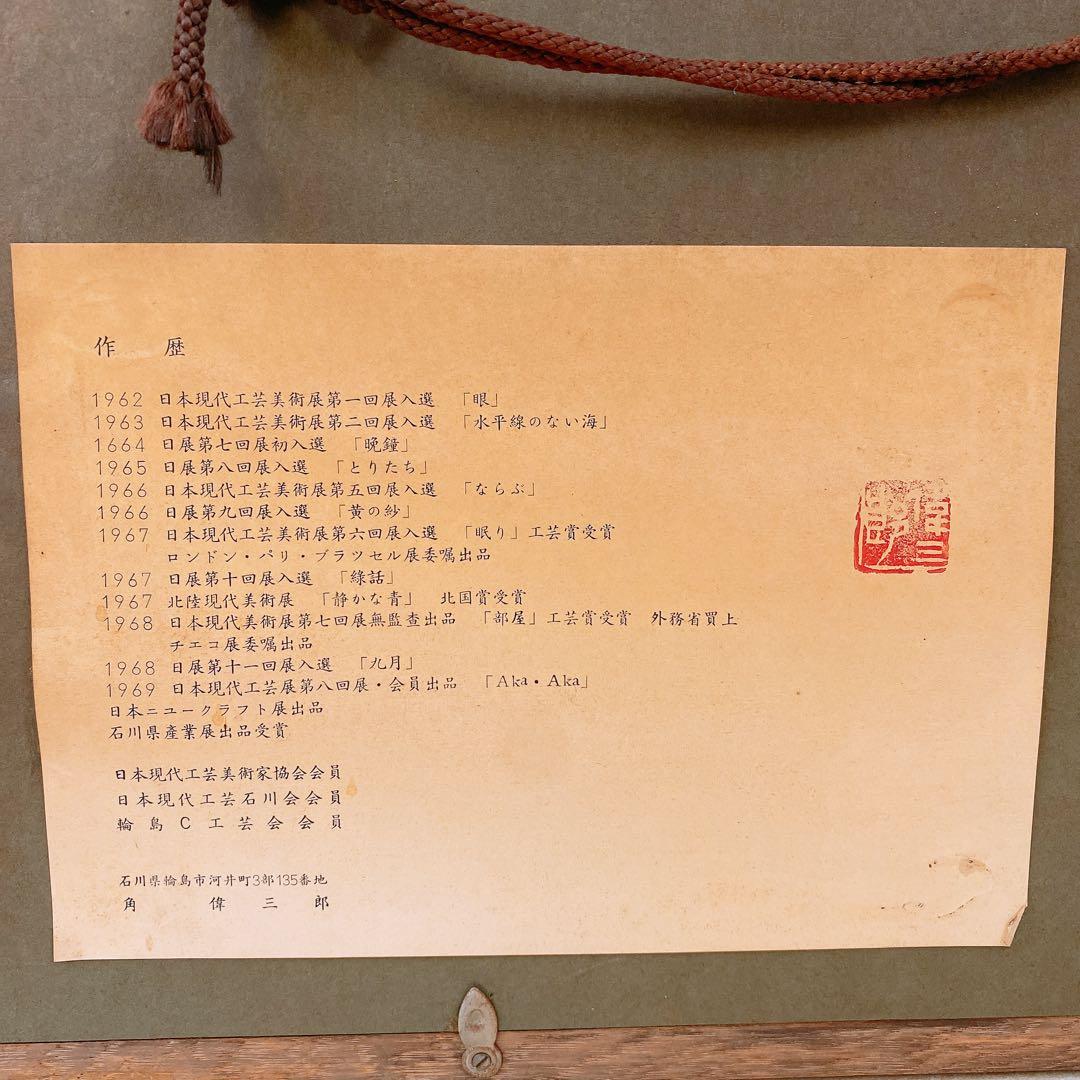 作 歴
1962 日本現代工芸美術展第一回展入選 「眼」
1963 日本現代工芸美術展第二回展入選 「水平線のない海」
1664 日展第七回展初入選 「晩鐘」
1965 日展第八回展入選 「とりたち」
1966 日本現代工芸美術展第五回展入選 「ならぶ」
1966 日展第九回展入選 「黄の紗」
1967 日本現代工芸美術展第六回展入選 「眠り」工芸賞受賞
ロンドン・パリ・ブラツセル展委嘱出品
1967 日展第十回展入選 「綠話」
1967 北陸現代美術展 「静かな青」 北国賞受賞
1968 日本現代工芸美術展第七回展無監査出品 「部屋」工芸賞受賞 外務省買上
チエコ展委嘱出品
1968 日展第十一回展入選 「九月」
1969 日本現代工芸展第八回展・会員出品 「Aka・Aka」
日本ニユークラフト展出品
石川県産業展出品受賞
日本現代工芸美術家協会会員
日本現代工芸石川会会員
輪島C工芸会会員
石川県輪島市河井町3部135番地
角 偉三郎